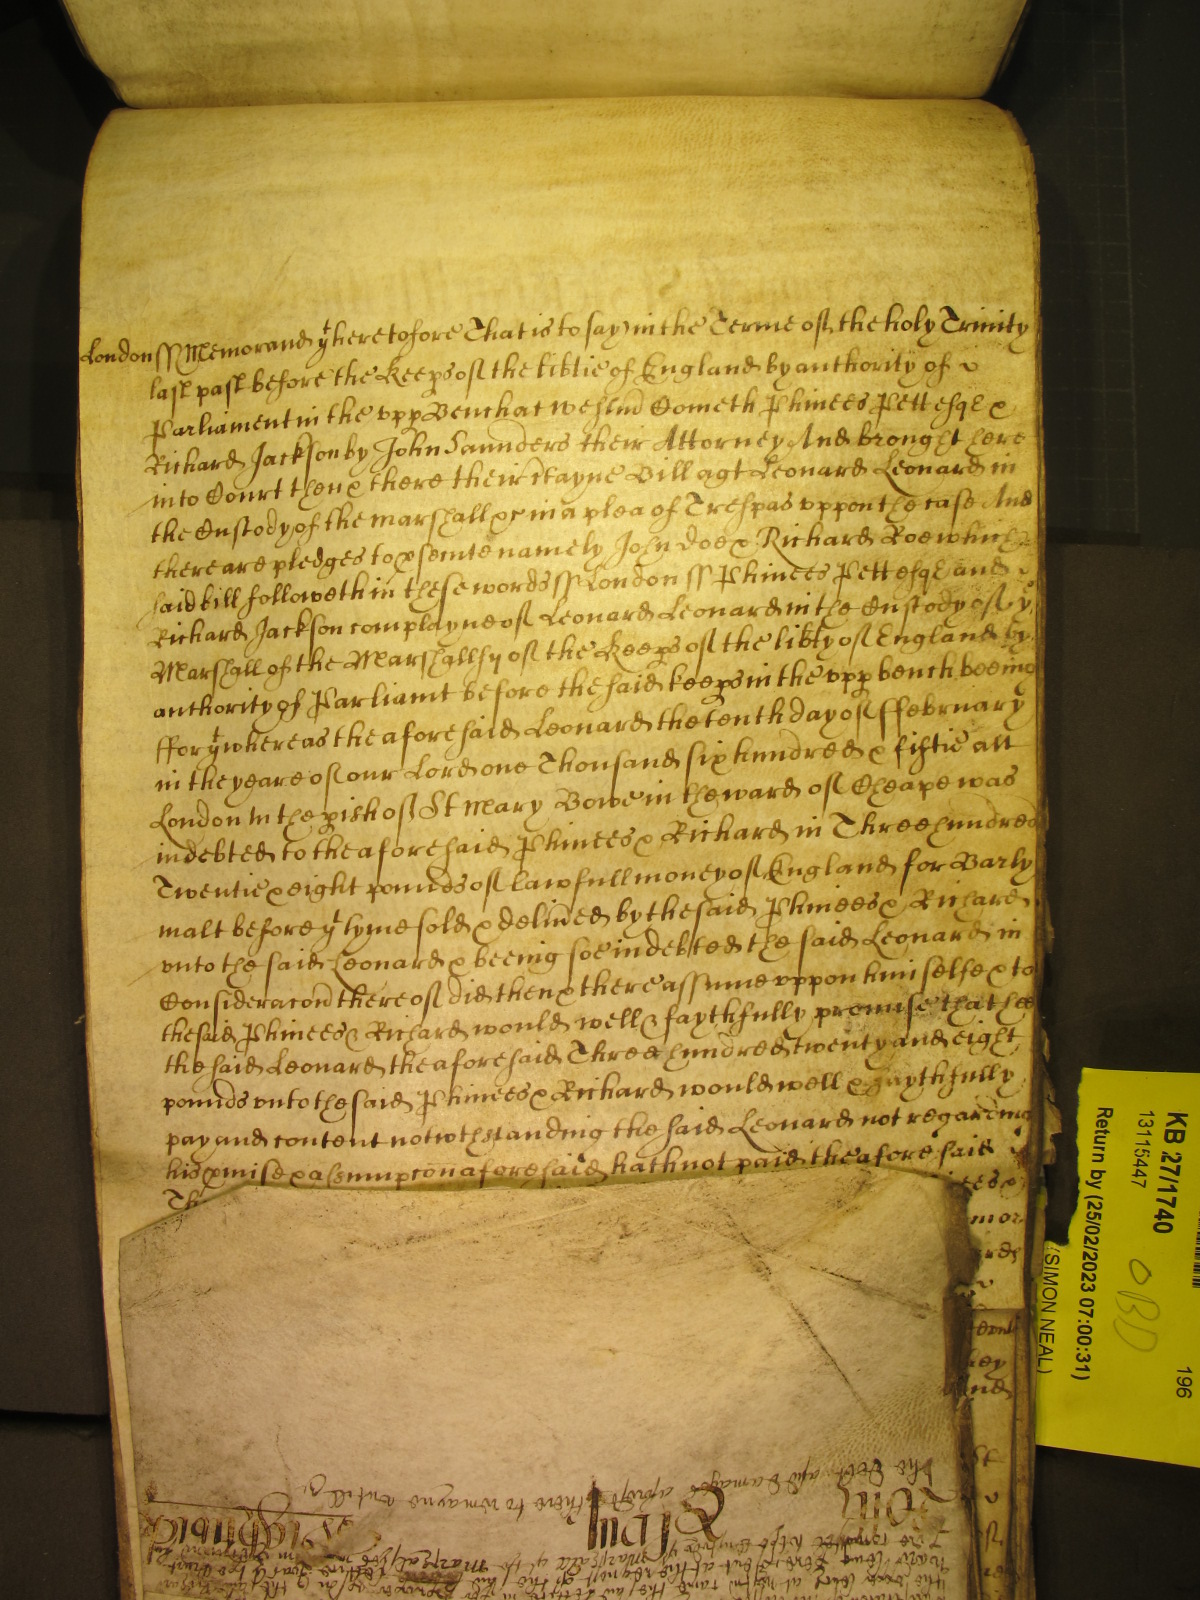 London ss Memorand yt heretofore That is to say in the Terme of the holy Trinity
last past before the Keeps of the libtie of England by authority of
Parliament in the vpp Bench at Westmd Cometh Phinees Pett esqe &
Richard Jackson by John Saunders their Attorney And brought here
into Court then & there their ctayne Bill agt Leonard Leonard in
the Custody of the marshall &c in a plea of Trespas vppon the case And
there are pledges to psecute namely John Doe & Richard Roe which
said bill followeth in these words ss London ss Phinees Pett esqe and
Richard Jackson complayne of Leonard Leonard in the Custody of ye
Marshall of the Marshallsy of the Keeps of the libty of England by
authority of Parliamt before the said keeps in the vpp bench beeing
ffor yt whereas the aforesaid Leonard the tenth day of ffebruary
in the yeare of our Lord one Thousand six hundred & fiftie att
London In the pish of St Mary Bowe in the ward of Cheape was
indebted to the aforesaid Phinees & Richard in Three hundred
Twentie & eight pounds of lawfull money of England for Barly
malt before yt tyme sold & delived by the said Phinees & Richard
vnto the said Leonard & beeing soe indebted the said Leonard in
Consideracon thereof did then & there assume vppon himselfe & to
the said Phinees & Richard would well & faythfully promise that hee
the said Leonard the aforesaid Three hundred twenty and eight
pounds vnto the said Phinees & Richard would well & faythfully
pay and content notwthstanding the said Leonard not regarding
his pmise & assumpcon aforesaid hath not paid the aforesaid
Th
the Debt and damages aforesd there to remayne vntill &c
KB 27/1740
13115447
Return by (25/02/2023 07:00:31)
(SIMON NEAL)
OBD
196